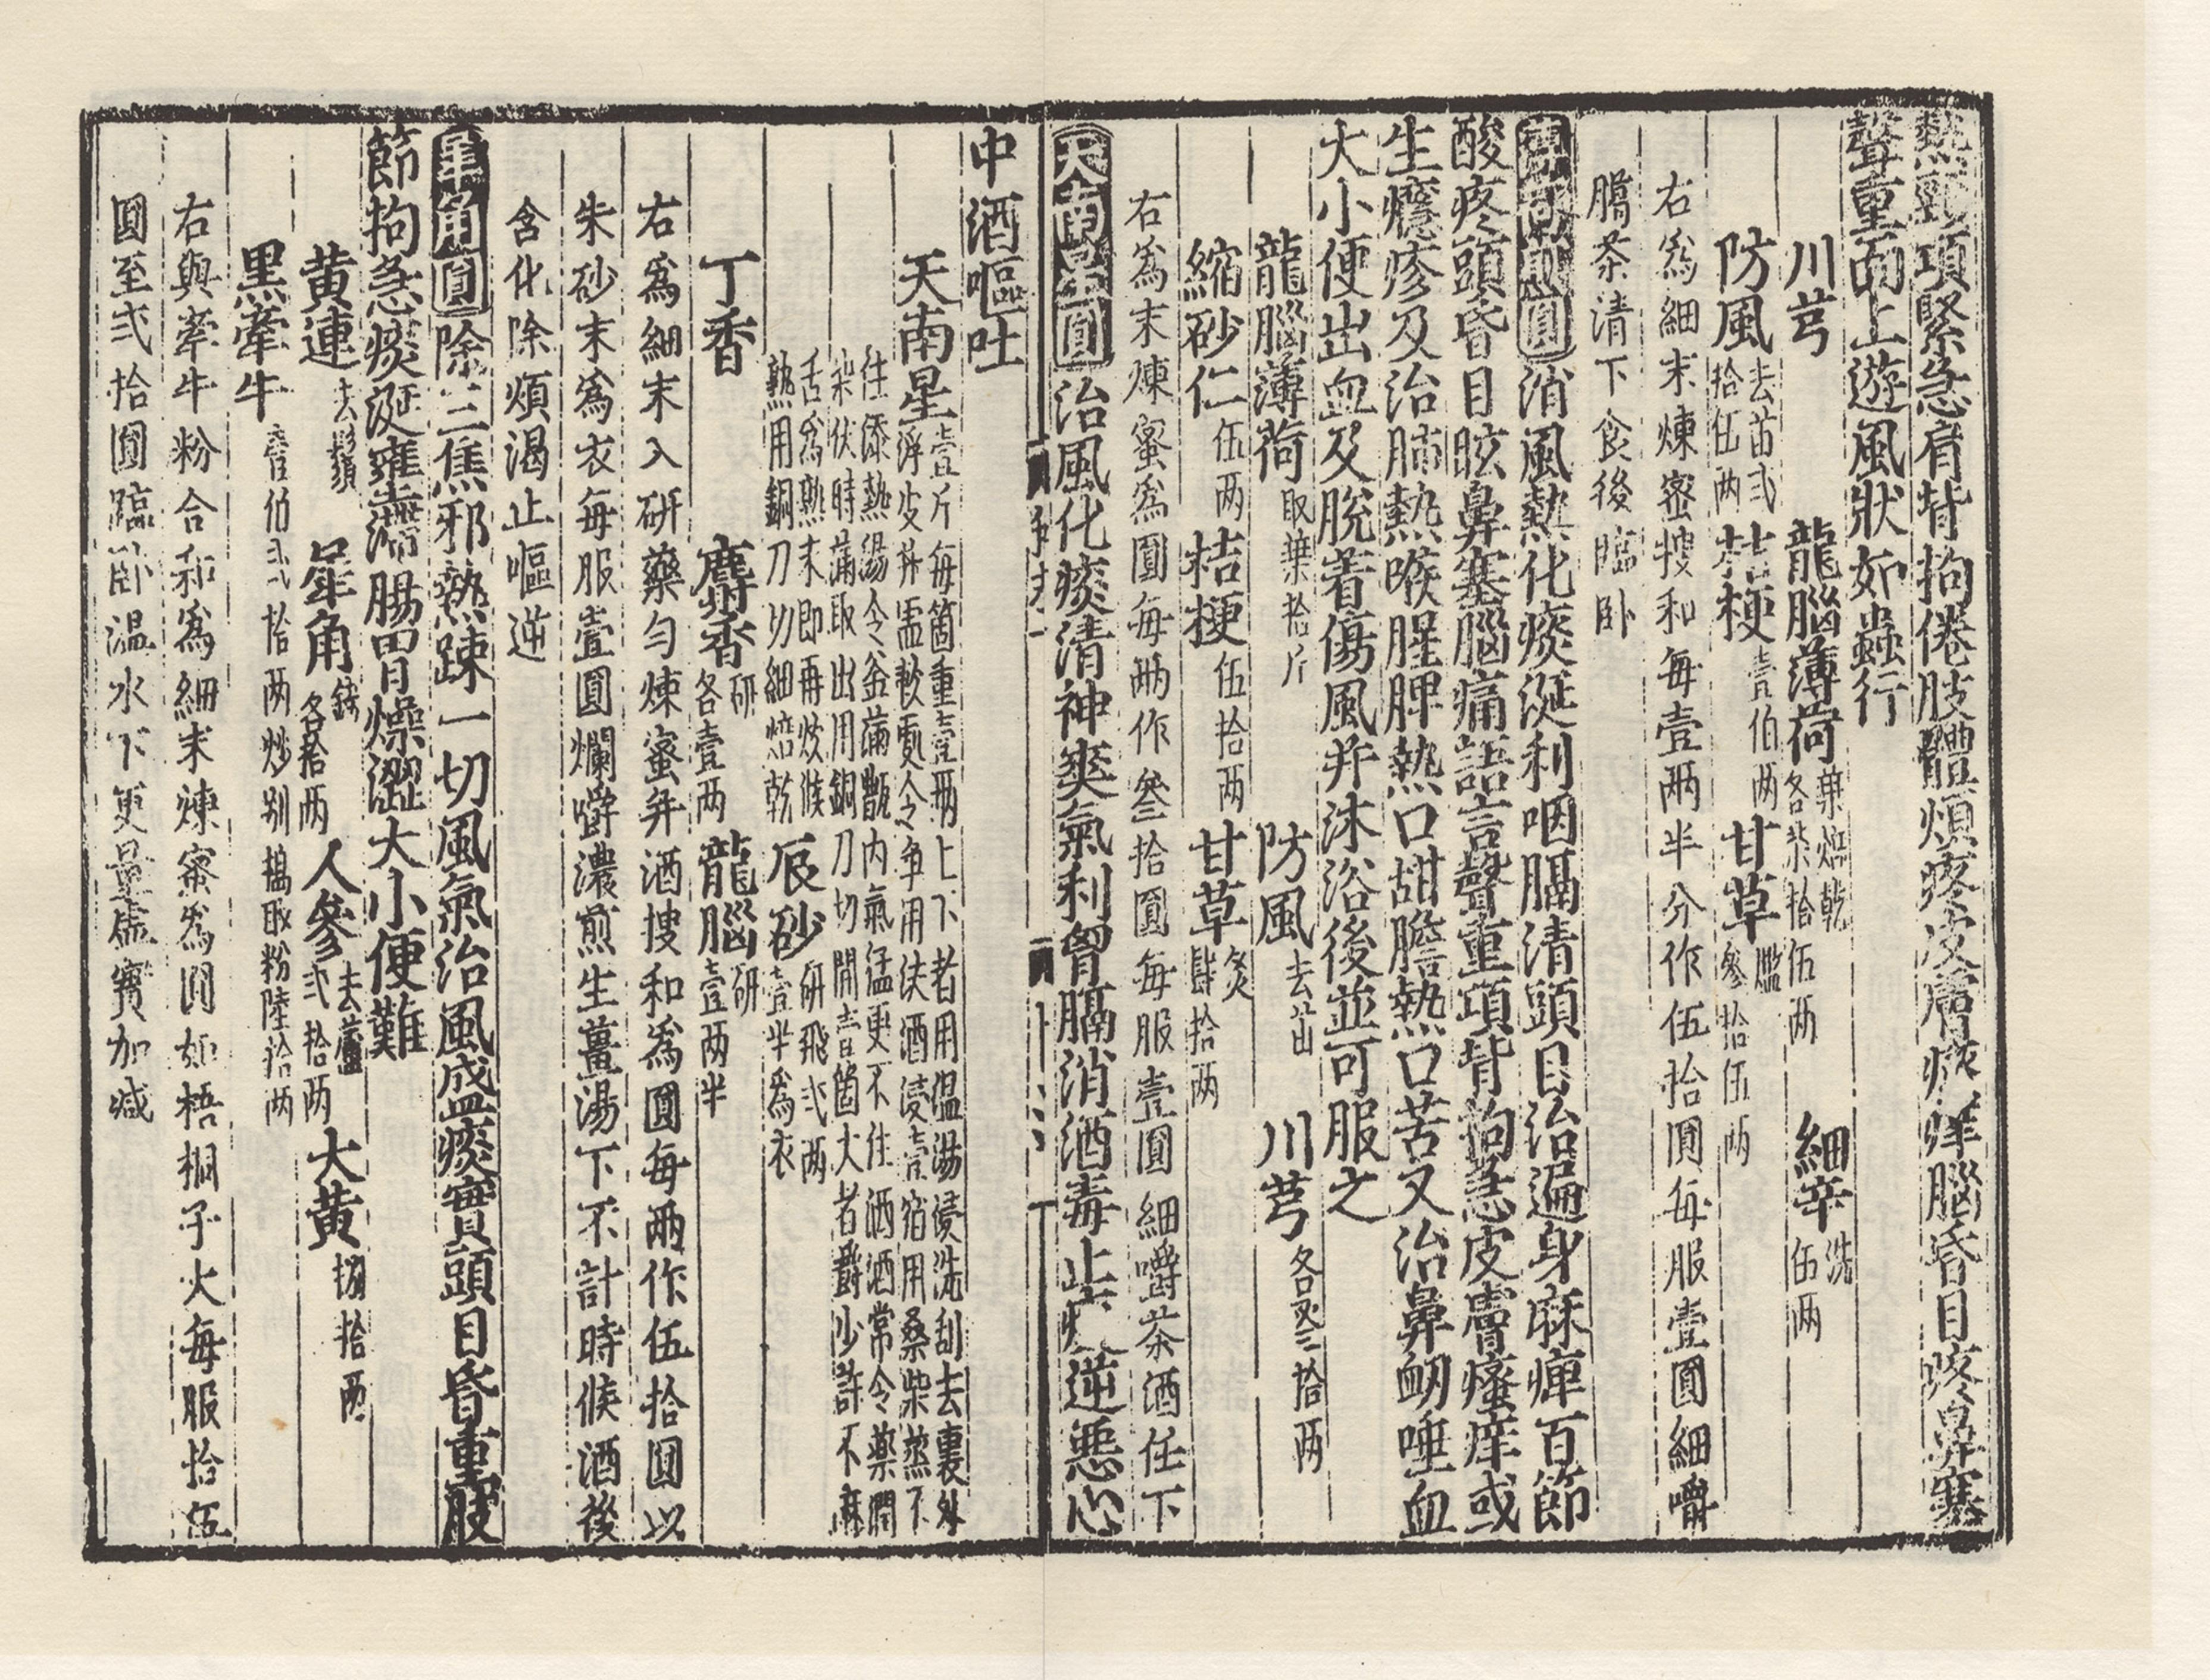 熱頸項緊急肩背拘倦肢體煩疼皮膚瘙痒腦昏目疼鼻塞
聲重面上遊風狀如蟲行
川芎 龍腦薄荷葉焙乾各柒拾伍两 細辛洗伍两
防風去苗弍拾伍两 桔梗壹伯两 甘草爁參拾伍两
右爲細末煉蜜搜和每壹兩半分作伍拾圓每服壹圓細嚼
臈茶清下食後臨卧
圓消風熱化痰涎利咽膈清頭目治遍身麻痺百節
酸疼頭昏目眩鼻塞腦痛語言聲重項背拘急皮膚瘙痒或
生癮疹及治肺熱喉腥脾熱口甜膽熱口苦又治鼻衂唾血
大小便出血及脫着傷風并沐浴後並可服之
龍腦薄荷取葉拾斤 防風去苗 川芎各參拾两
縮砂仁伍两 桔梗伍拾两 甘草炙肆拾两
右爲末煉蜜爲圓每兩作參拾圓每服壹圓細嚼茶酒任下
天南星圓治風化痰清神爽氣利胷膈消酒毒止痰逆惡心
中酒嘔吐
天南星壹斤每箇重壹兩上下者用温湯浸洗刮去裏外
浮皮并虛軟處令净用法酒浸壹宿用桑柴蒸不
住添熱湯令釜滿甑内氣猛更不住洒酒常令藥潤
柒伏時滿取出用銅刀切開壹箇大者嚼少許不麻
舌爲熟未即再炊候
熟用銅刀切細焙乾 辰砂研飛弍两
壹半爲衣
丁香 麝香研各壹两 龍腦研壹两半
右爲細末入研藥勻煉蜜并酒搜和爲圓每兩作伍拾圓以
朱砂末爲衣每服壹圓爛嚼濃煎生薑湯下不計時候酒後
含化除煩渴止嘔逆
犀角圓除三焦邪熱踈一切風氣治風盛痰實頭目昏重肢
節拘急痰涎壅滯腸胃燥澀大小便難
黃連去鬚 犀角鎊各拾两 人參去蘆弍拾两 大黃捌拾两
黑牽牛壹伯弍拾两炒别搗取粉陸拾两
右與牽牛粉合和爲細末煉蜜爲圓如梧桐子大每服拾伍
圓至弍拾圓臨卧温水下更量虛實加減